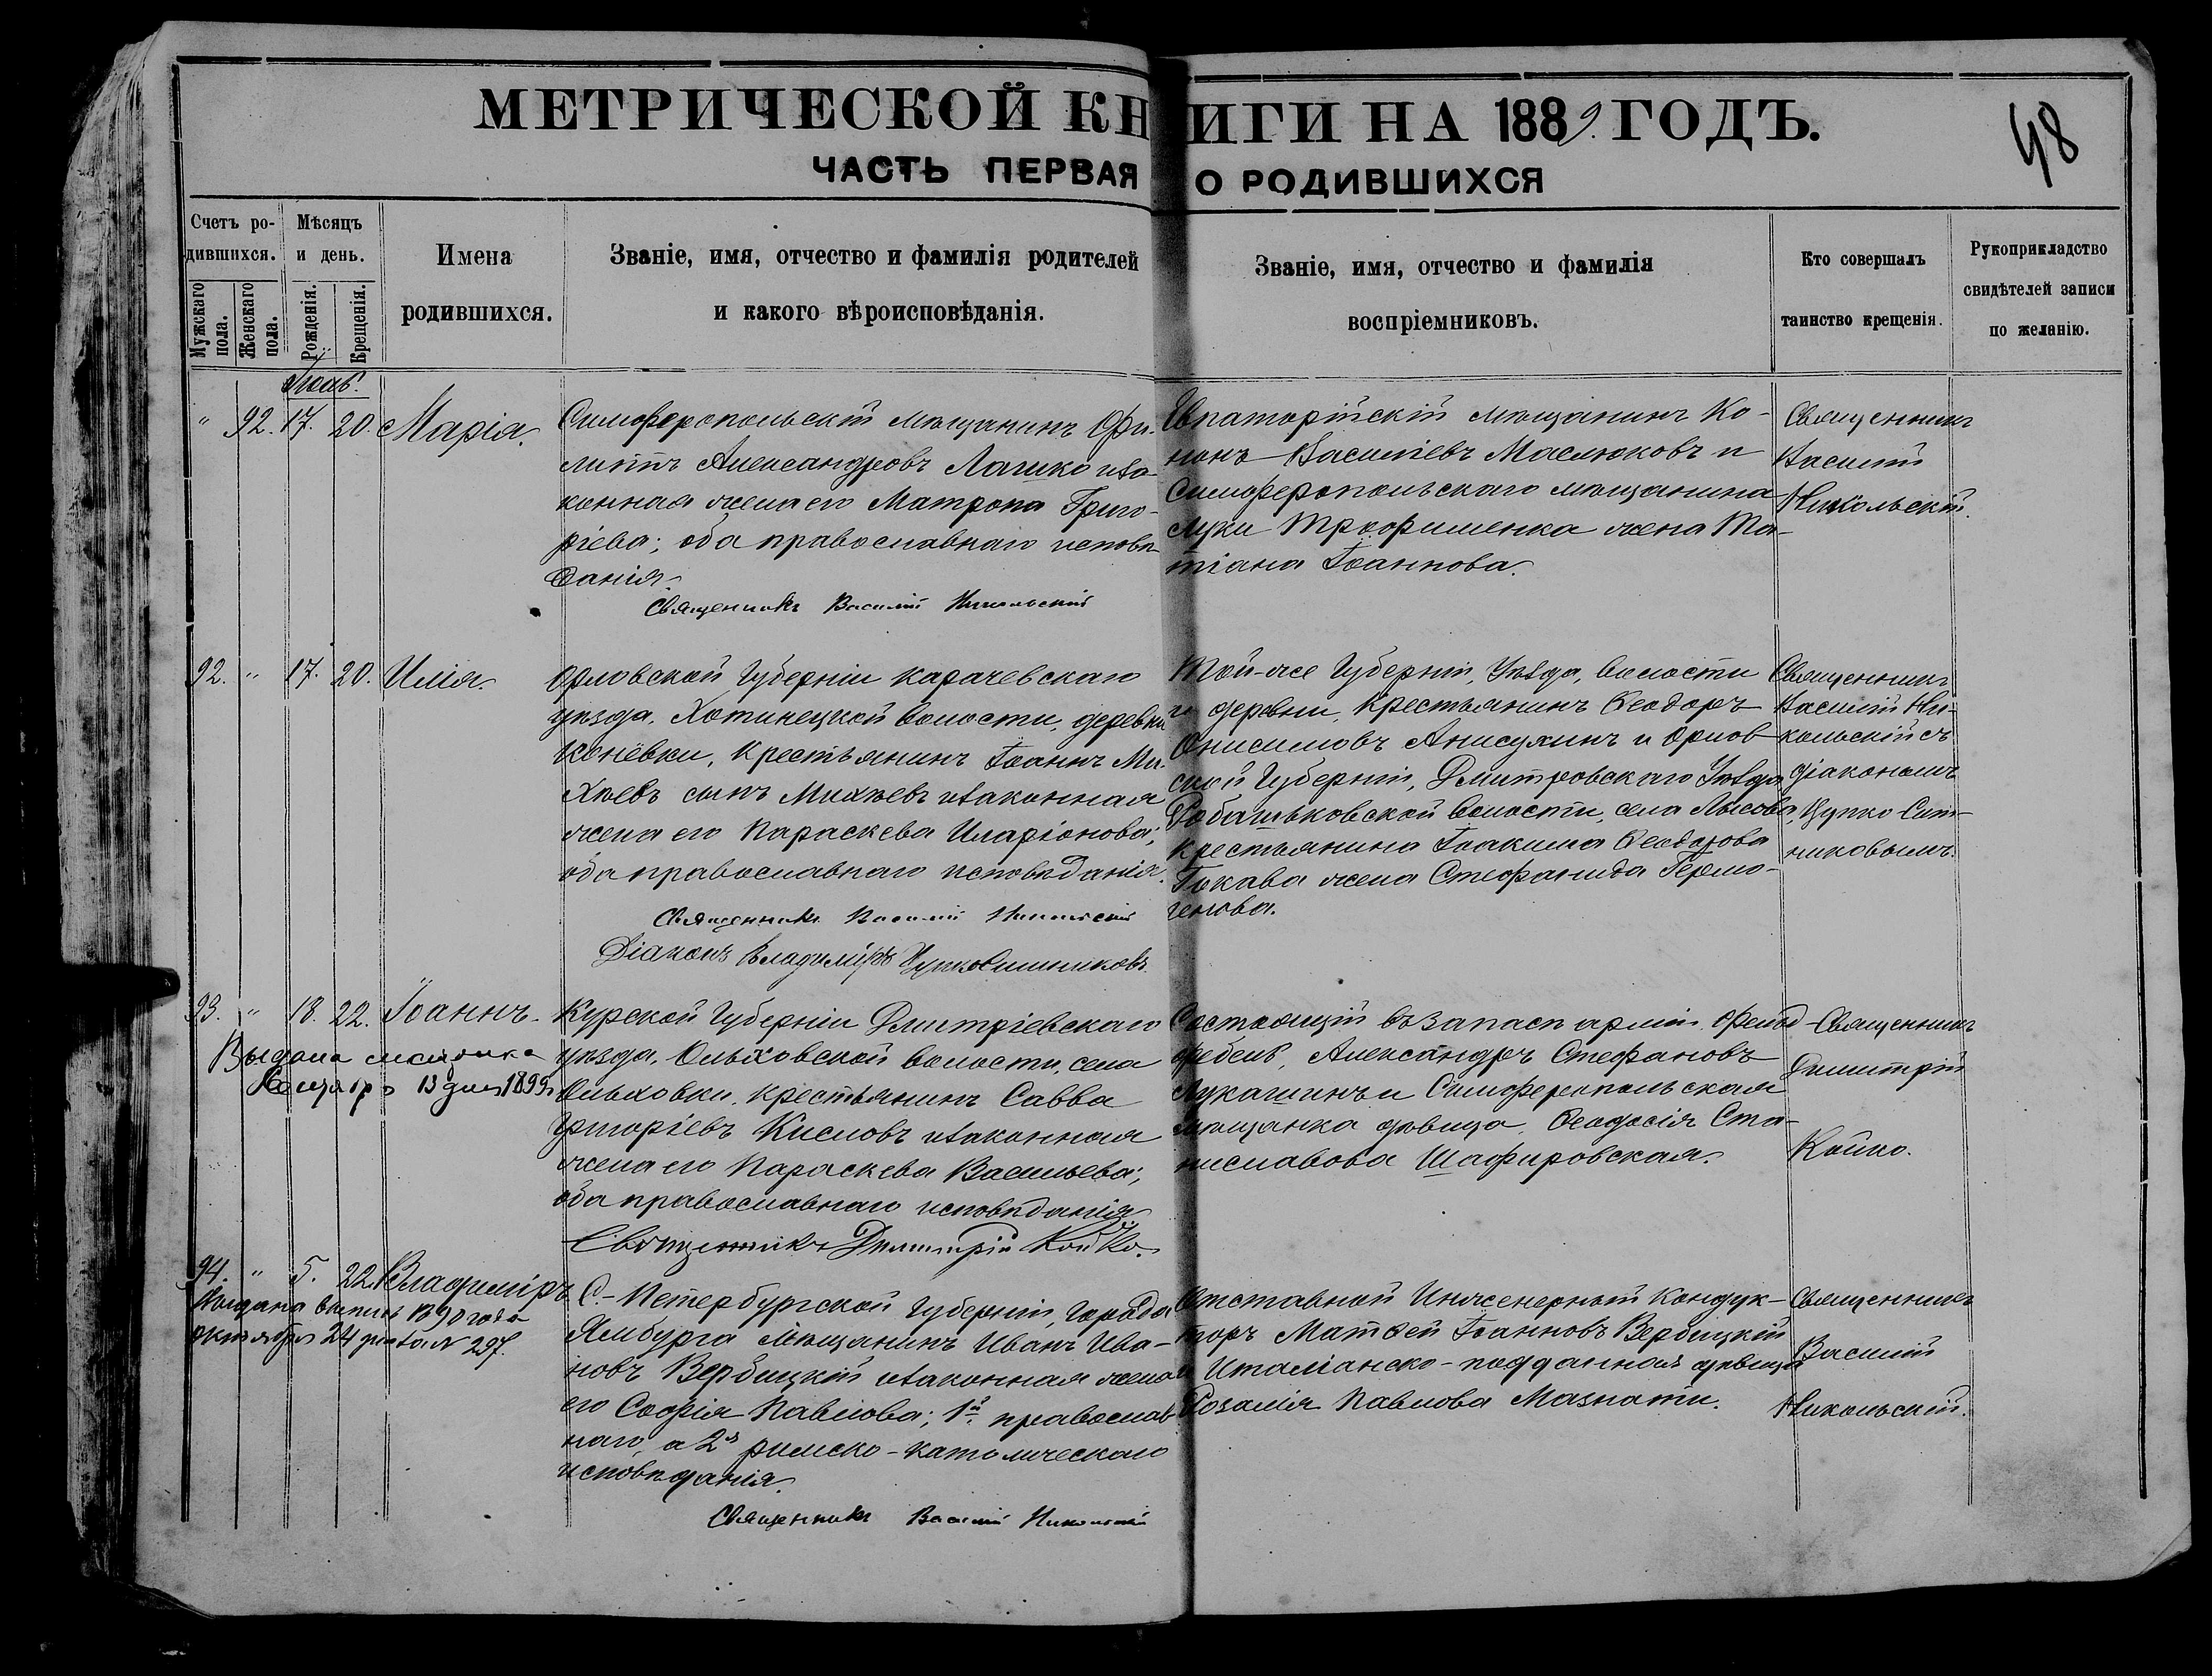 МЕТРИЧЕСКОЙ КНИГИ НА 1889. ГОДЪ.
48
ЧАСТЬ ПЕРВАЯ О РОДИВШИХСЯ
Счетъ ро-
дившихся.
Мужскаго пола.
Женскаго пола.
Мѣсяцъ
и день.
Рожденія.
Крещенія.
Имена
родившихся.
Званіе, имя, отчество и фамилія родителей
и какого вѣроисповѣданія.
Званіе, имя, отчество и фамилія
воспріемниковъ.
Кто совершалъ
таинство крещенія.
Рукоприкладство
свидѣтелей записи
по желанію.
" 92. 17. 20. Марія.
Симферопольскій мѣщанинъ Фи-
липпъ Александровъ Лашко и за-
конная жена его Матрона Григо-
ріева; оба православнаго исповѣ-
данія.
Священникъ Василій Никольскій
Евпаторійскій мѣщанинъ Ко-
нонъ Василіевъ Маслюковъ и
Симферопольскаго мѣщанина
Луки Трофименка жена Та-
тіана Іоаннова.
Священникъ
Василій
Никольскій.
92. " 17. 20. Илія.
Орловской Губерніи Карачевскаго
уѣзда, Хотинецкой волости, деревни
Коневки, Крестьянинъ Іоаннъ Ми-
хѣевъ сынъ Михѣевъ и законная
жена его Параскева Иларіонова;
оба православнаго исповѣданія.
Священникъ Василій Никольскій
Діаконъ Владиміръ
Той-же Губерніи, Уѣзда, волости
и деревни, Крестьянинъ Ѳеодоръ
Онисимовъ Анисухинъ и Орлов
ской Губерніи, Дмитровскаго Уѣзда
волости, села Лысова,
крестьянина Іоакима Ѳеодорова
жена Стефанида Гермо-
генова.
Священникъ
Василій Ни-
кольскій съ
діакономъ
Цупко-Сит-
никовымъ.
93. " 18. 22. Іоаннъ.
Выдана
13 дня 1899
Курской Губерніи Дмитріевскаго
уѣзда, Ольховской волости, села
Ольховки, Крестьянинъ Савва
Григоріевъ Кисловъ и законная
жена его Параскева Васильева;
оба православнаго исповѣданія
Священникъ Димитрій Койко.
Состоящій въ запасѣ арміи, фельд-
фебель, Александръ Стефановъ
Лукашинъ и Симферопольская
мѣщанка дѣвица, Ѳеодосія Ста-
ниславова Шафировская.
Священникъ
Димитрій
Койко.
94. " 5. 22. Владиміръ
Выдана выпись 1890 года
октября 24 дня за № 297.
С.-Петербургской Губерніи, города
Ямбурга мѣщанинъ Иванъ Ива-
новъ Вербицкій и законная жена
его Софія Павлова; 1й православ-
наго, а 2я римско-католическаго
исповѣданія.
Священникъ Василій Никольскій
Отставной Инженерный Кондук-
торъ Матѳей Іоанновъ Вербицкій
и Итальянско-подданная дѣвица
Розалія Павлова Мазнати.
Священникъ
Василій
Никольскій.